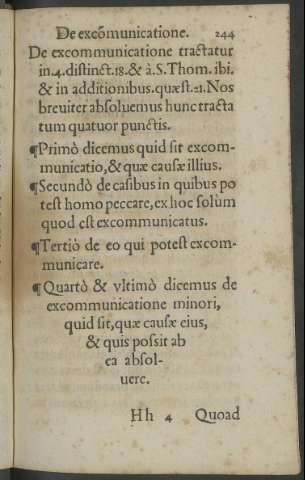 De excõmunicatione. 244
De excommunicatione tractatur
in.4.distinct.18.& à.S.Thom. ibi.
& in additionibus.quæst.21.Nos
breuiter absoluemus hunc tracta
tum quatuor punctis.
¶Primò dicemus quid sit excom-
municatio,& quæ causæ illius.
¶Secundò de casibus in quibus po
test homo peccare,ex hoc solùm
quod est excommunicatus.
¶Tertiò de eo qui potest excom-
municare.
¶Quartò & vltimò dicemus de
excommunicatione minori,
quid sit,quæ causæ eius,
& quis possit ab
ea absol-
uere.
Hh 4 Quoad